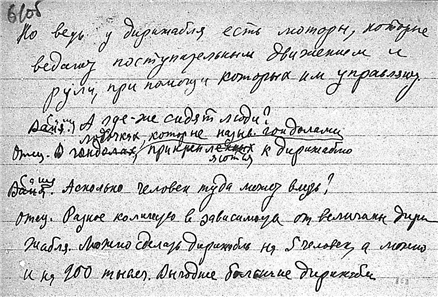 6/об
Но ведь у дирижабля есть моторы, которые
ведают поступательным движением и
рули, при помощи которых им управляют
Ваня. А где-же сидят люди?
лодочках, которые назыв. гондолами
Отец. В гондолах, прикрепляются к дирижаблю
Ваня. А сколько человек туда может
Отец. Разное количество в зависимости от величины дири
жабля. Можно сделать дирижабль на 5 человек, а можно
и на 900 тысяч. Выгоднее большие дирижабли